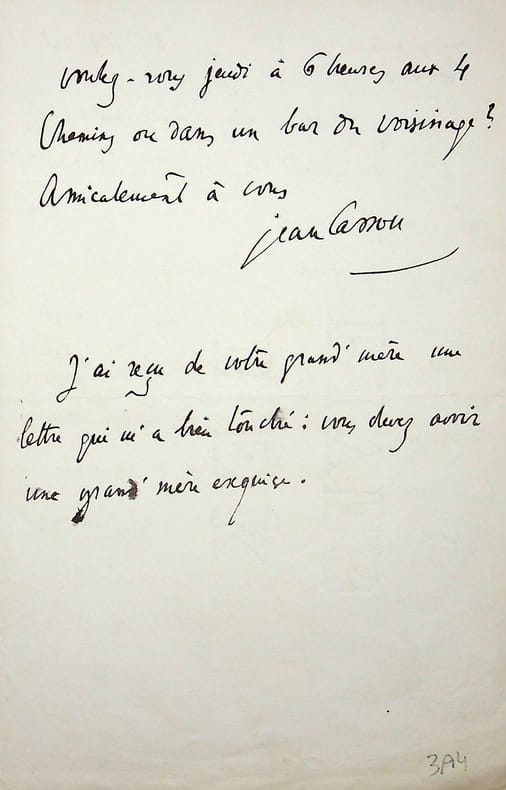 voulez-vous jeudi à 6 heures aux 4
Chemins ou dans un bar du voisinage ?
Amicalement à vous
Jean Cassou
J'ai reçu de votre grand'mère une
lettre qui m'a bien touché : vous devez avoir
une grand'mère exquise.
3A4